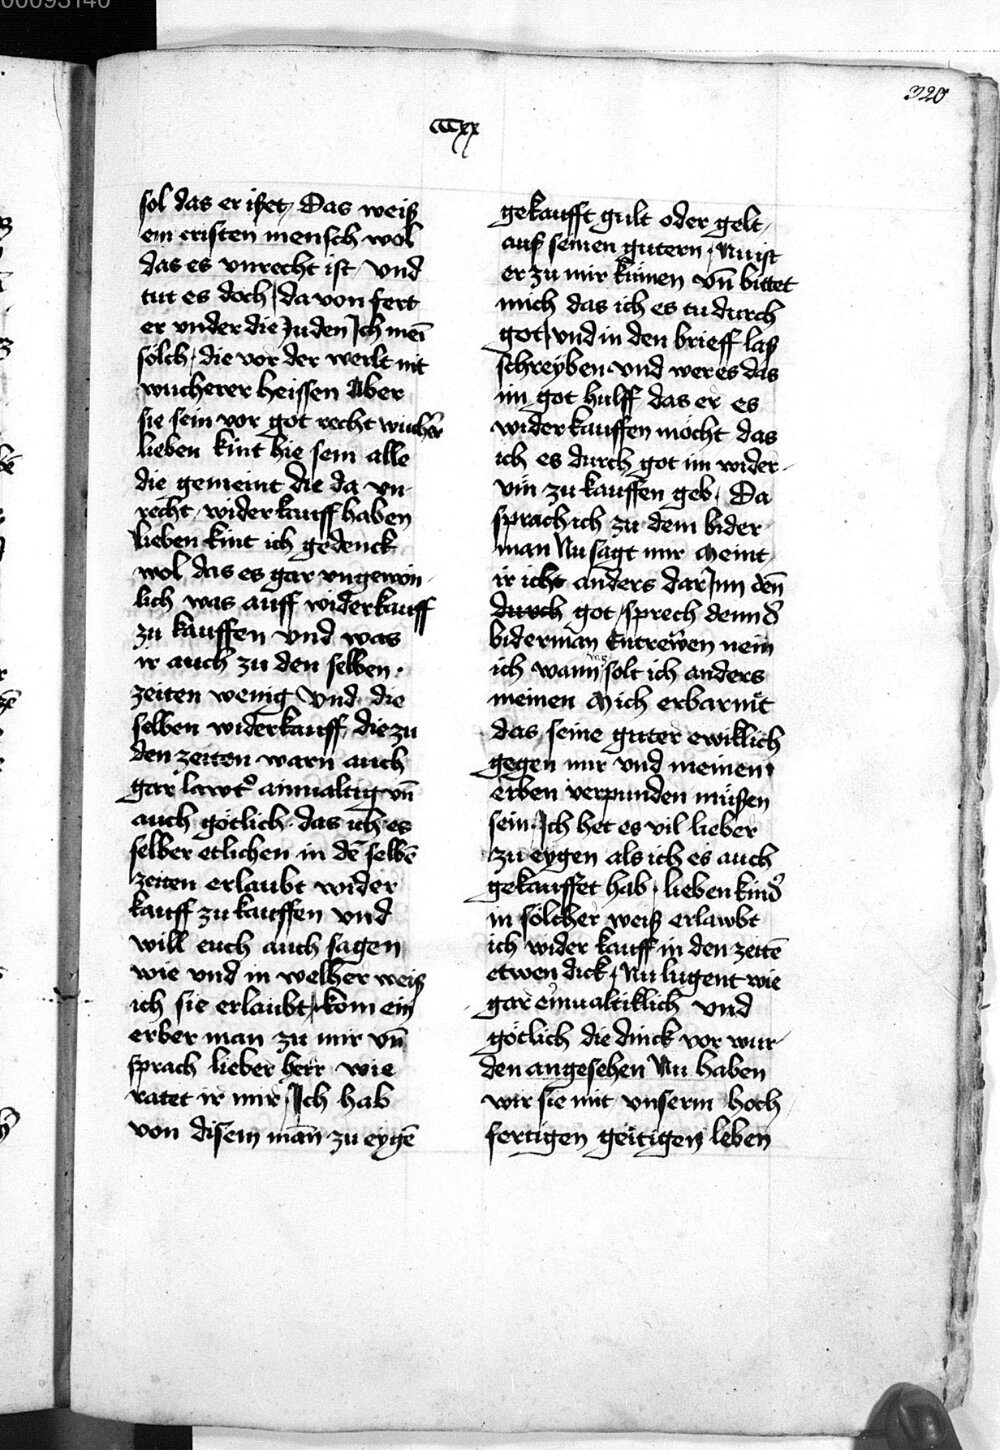 00093140
320
cccxx
sol das er ißet / Das weiß
ein cristen mensch wol
das es vnrecht ist / vnd
tut es doch / da von fert
er vnder die Juden Jch meī
sölch / die vor der werlt nit
wucherer heissen Aber
sie sein vor got recht wucher
lieben kint hie sein alle
die gemeint die da vn-
recht / widerkauff haben
lieben kint ich gedenck
wol das es gar vngewon-
lich was auff widerkauff
zu kauffen vnd was
ir auch zu den selben
zeiten wenig vnd die
selben widerkauff die zu
den zeiten warn auch
gar lawt ainualtig vn̄
auch götlich das ich es
selber etlichen in dē selbē
zeiten erlaubt wider
kauff zu kauffen vnd
will euch auch sagen
wie vnd in welher weiß
ich sie erlaubt / kom ein
erber man zu mir vn̄
sprach lieber herr wie
ratet ir mir / Jch hab
von disem man zu eygē
gekaufft gült oder gelt /
auß seinen gutern / Nu ist
er zu mir kumen vn̄ bittet
mich das ich es tu durch
got / vnd in den brieff laß
schreyben vnd wer es das
im got hulff das er es
widerkauffen möcht das
ich es durch got im wider-
vm zu kauffen geb / Da
sprach ich zu dem bider-
man Nu sagt mir Meint
ir icht anders dar Jnn den̄
durch got / sprech denn d
biderman Entrewen nein
ich wann solt ich anders
meinen Mich erbarmt
das seine guter ewiklich
gegen mir vnd meinen
erben verpunden müßen
sein / Jch het es vil lieber
zu eygen als ich es auch
gekauffet hab / lieben kind
in sölcher weiß erlawbt
ich wider kauff in den zeitē
etwen dick / Nu lugent wie
gar einualtiklich vnd
götlich die dinck vor wur-
den angesehen Nu haben
wir sie mit vnserm hoch
fertigen geitigen leben